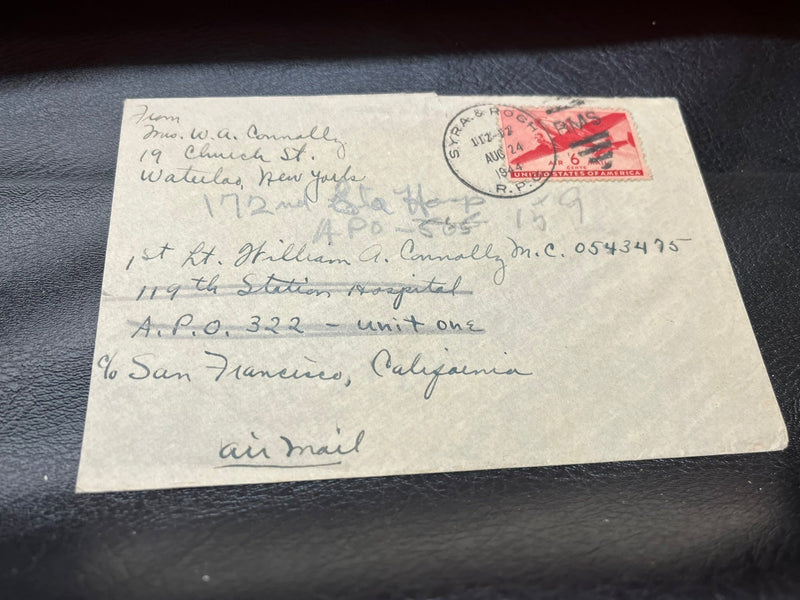 From
Mrs. W. A. Connolly
19 Church St.
Waterloo, New York
SYRA. & ROCH.
AUG 24
1944
R.P.O.
RMS
AIR 6
CENTS
UNITED STATES OF AMERICA
172nd Sta Hosp
APO - 565 159
1st Lt. William A. Connolly M.C. 0543475
119th Station Hospital
A.P.O. 322 - Unit one
c/o San Francisco, California
air mail